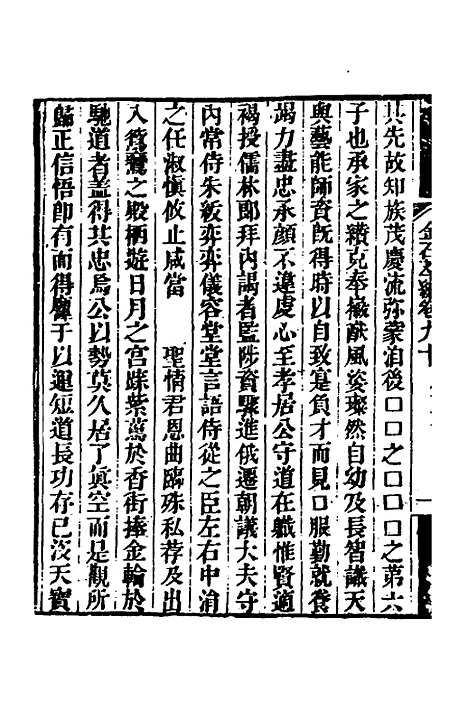 其先故知族茂慶流弥蒙洎後口口之口口口之第六
子也承家之纘克奉徽猷風姿璨然自幼及長智識天
與藝能師資旣得時以自致寔負才而見口服勤就養
竭力盡忠承顔不違虔心至孝居公守道在軄惟賢適
褐授儒林郎拜内謁者監陟資驟進俄遷朝議大夫守
内常侍朱紱弈弈儀容堂堂言語侍從之臣左右中涓
之任淑愼攸止咸當 聖情君恩曲臨殊私荐及出
入鴛鸞之殿栖遊日月之宮蹂紫萬於香街捧金輪於
馳道者蓋得其忠焉公以勢莫久居了眞空而是觀所
歸正信悟卽有而得麾于以遐短道長功存已没天寳
金石萃編卷九十